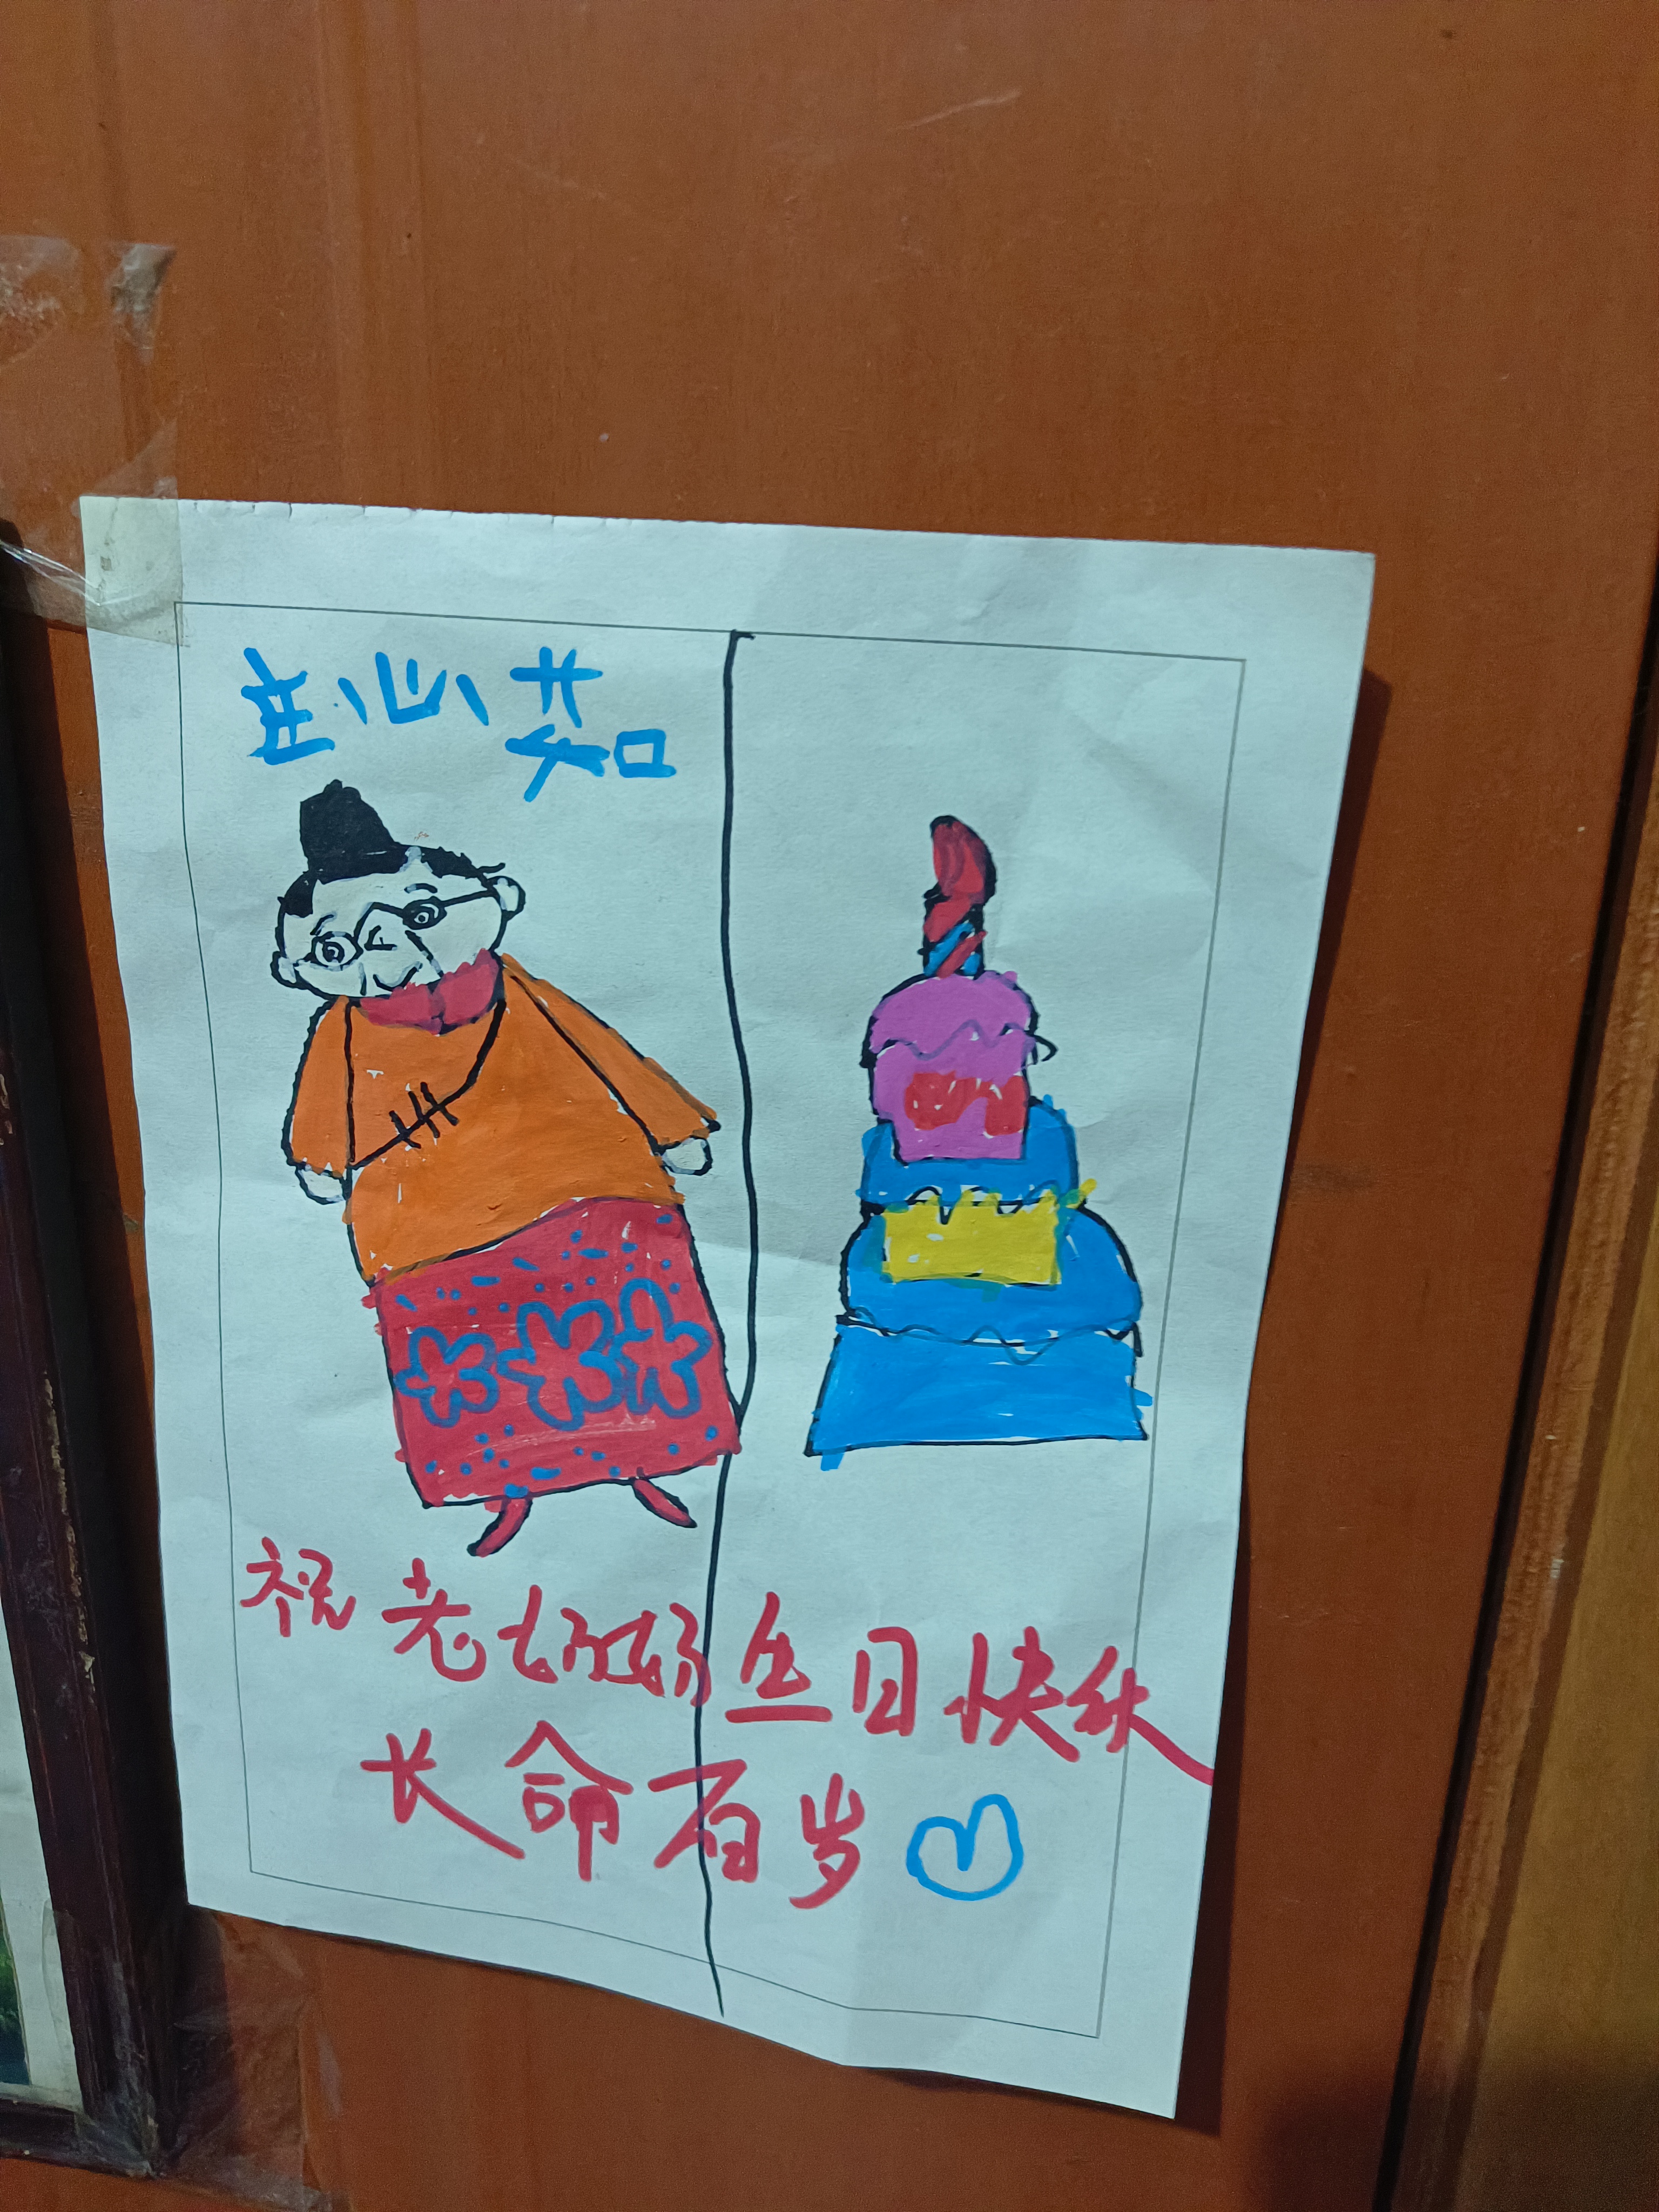 庄心茹
祝老奶奶生日快乐
长命百岁